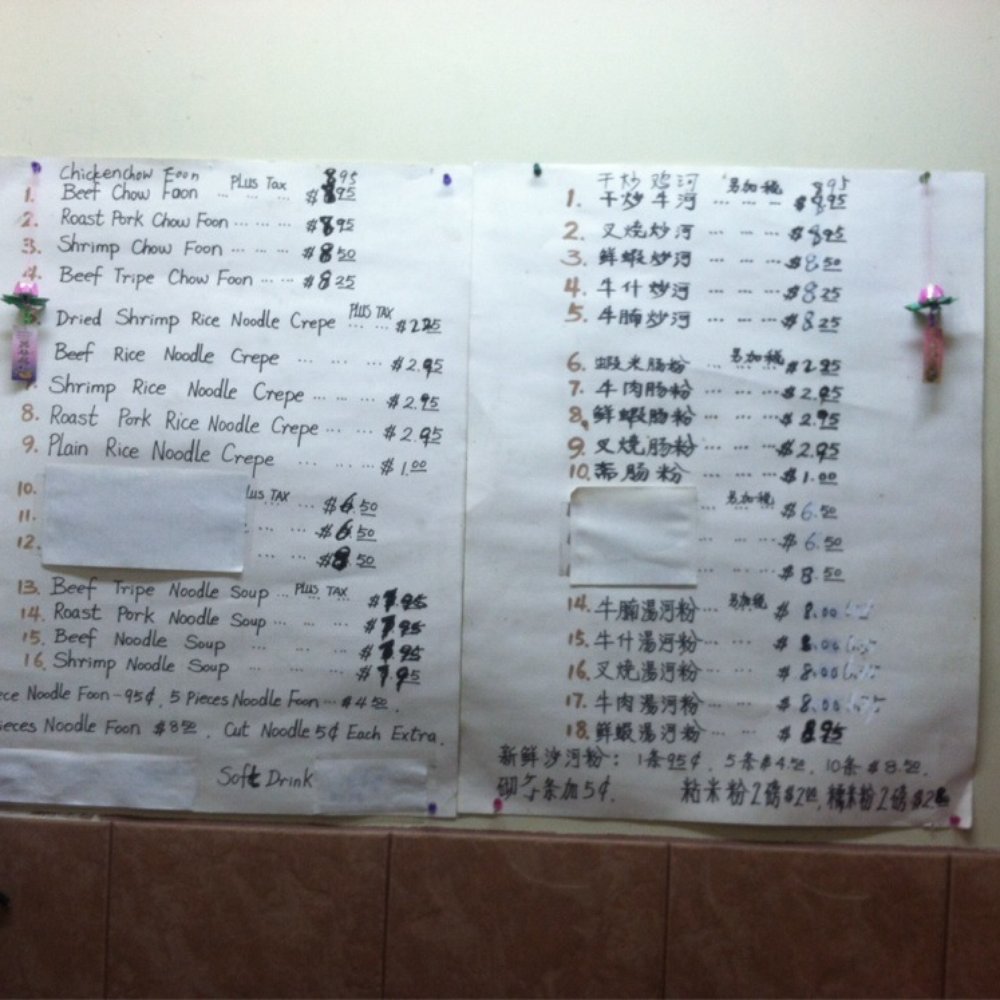 Chicken chow Foon 8.95
1. Beef Chow Foon ... ... PLUS TAX $8.95
2. Roast Pork Chow Foon ... ... ... $8.95
3. Shrimp Chow Foon ... ... $8.50
4. Beef Tripe Chow Foon ... ... $8.25
5. Dried Shrimp Rice Noodle Crepe ... ... PLUS TAX $2.95
Beef Rice Noodle Crepe ... ... ... $2.95
7. Shrimp Rice Noodle Crepe ... ... ... $2.95
8. Roast Pork Rice Noodle Crepe ... ... ... $2.95
9. Plain Rice Noodle Crepe ... ... ... $1.00
10. Plus TAX $6.50
11. ... ... $6.50
12. ... ... $8.50
13. Beef Tripe Noodle Soup ... PLUS TAX $7.95
14. Roast Pork Noodle Soup ... ... ... $7.95
15. Beef Noodle Soup ... ... ... $7.95
16. Shrimp Noodle Soup ... ... ... $7.95
ece Noodle Foon - 95¢, 5 Pieces Noodle Foon ... $4.50.
ieces Noodle Foon $8.50. Cut Noodle 5¢ Each Extra.
Soft Drink
干炒鸡河 8.95
1. 干炒牛河 ... ... ... 另加税 $8.95
2. 叉烧炒河 ... ... ... $8.95
3. 鲜蝦炒河 ... ... ... $8.50
4. 牛什炒河 ... ... ... $8.25
5. 牛腩炒河 ... ... ... $8.25
6. 蝦米肠粉 ... ... 另加税 $2.95
7. 牛肉肠粉 ... ... ... $2.95
8. 鲜蝦肠粉 ... ... ... $2.95
9. 叉烧肠粉 ... ... ... $2.95
10. 斋肠粉 ... ... ... $1.00
另加税 $6.50
... ... $6.50
... ... $8.50
14. 牛腩湯河粉 ... 另加税 $8.00
15. 牛什湯河粉 ... ... $8.00
16. 叉烧湯河粉 ... ... $8.00
17. 牛肉湯河粉 ... ... $8.00
18. 鲜蝦湯河粉 ... ... $8.95
新鲜沙河粉: 1条95¢, 5条$4.50, 10条$8.50.
条加5¢. 粘米粉2磅 糯米粉2磅